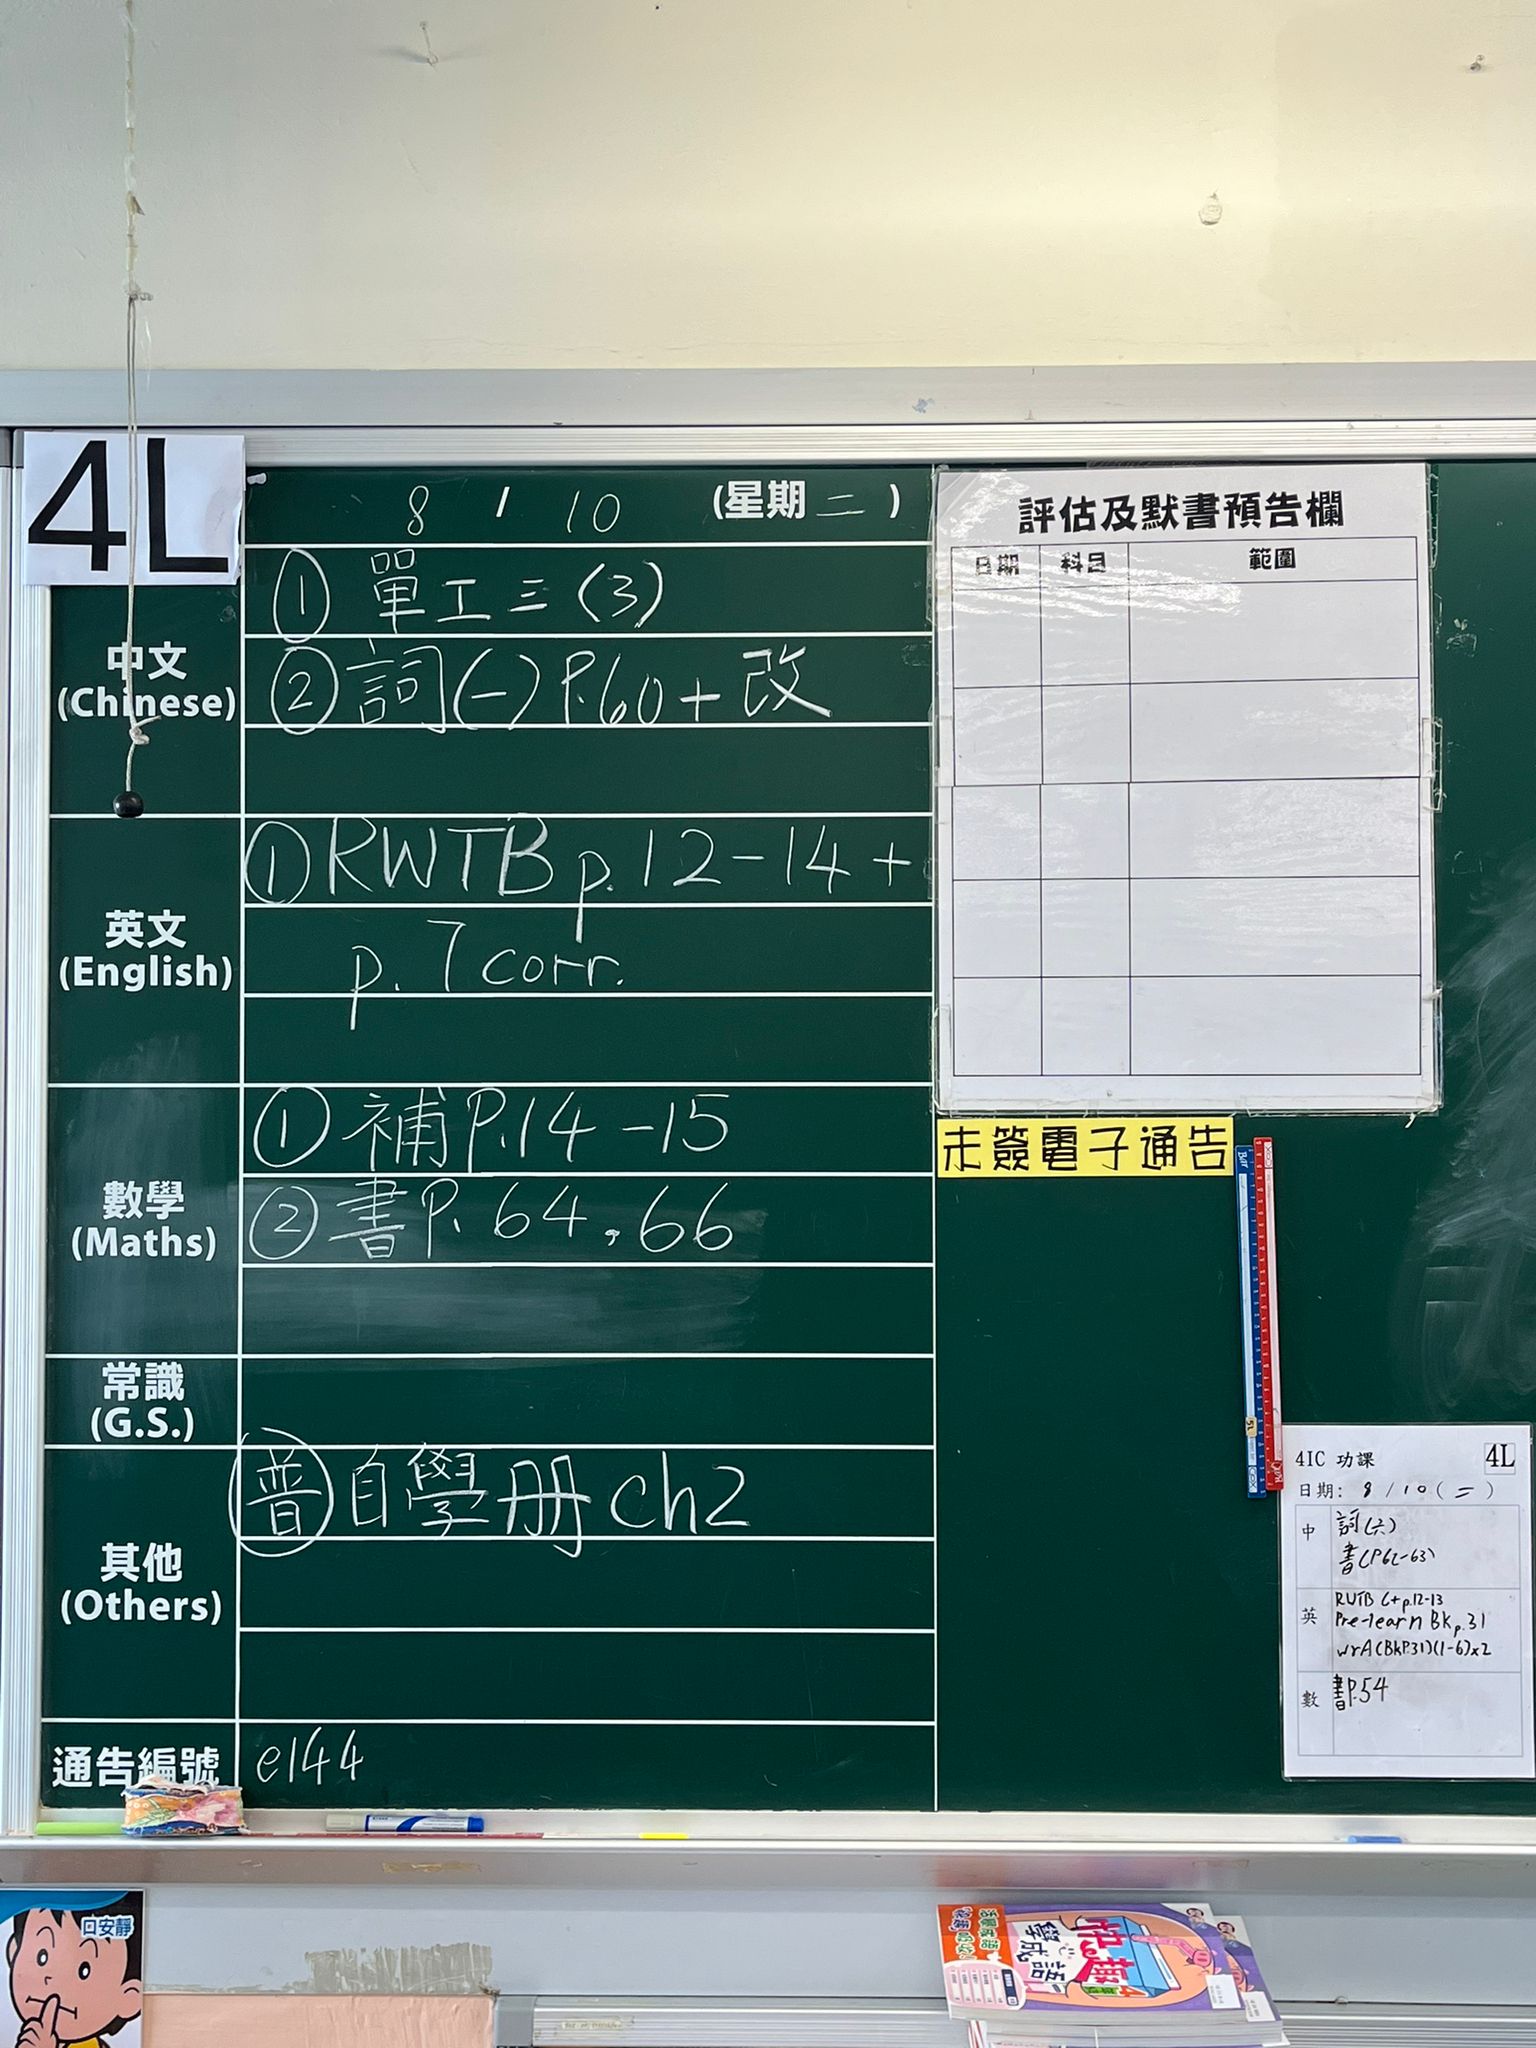 4L
8 / 10 (星期 二 )
中文
(Chinese)
① 單工三(3)
② 詞(一)P.60+改
英文
(English)
① RWTB p.12-14+
p.7 corr.
數學
(Maths)
① 補P.14-15
② 書P.64,66
常識
(G.S.)
其他
(Others)
普 自學册 ch2
通告編號
e144
評估及默書預告欄
日期 科目 範圍
未簽電子通告
4IC 功課 4L
日期: 8 / 10 ( 二 )
中 詞(六)
書(P62-63)
英 RWTB C+p.12-13
Pre-learn Bk p.31
wrA(BkP.31)(1-6)x2
數 書P.54
口安靜
快趣
學成語